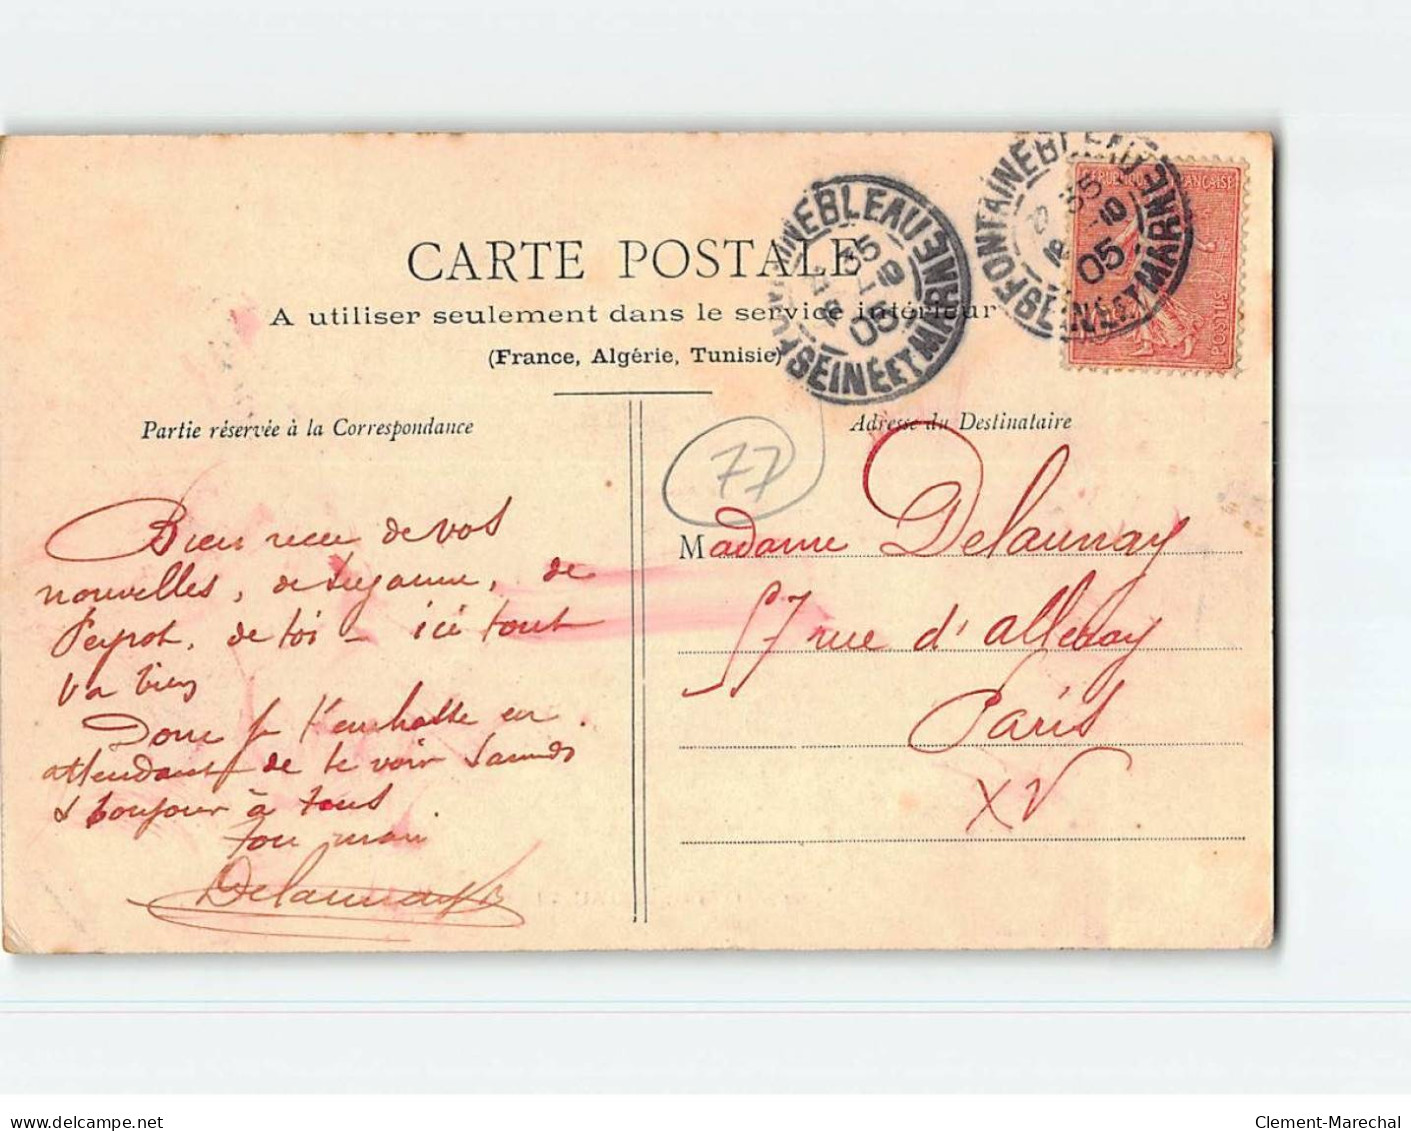 CARTE POSTALE
A utiliser seulement dans le service intérieur
(France, Algérie, Tunisie)
FONTAINEBLEAU
SEINE ET MARNE
35
10
05
FONTAINEBLEAU
SEINE ET MARNE
35
10
05
RÉPUBLIQUE FRANÇAISE
POSTES
Partie réservée à la Correspondance
Bien reçu de vos
nouvelles, de Suzanne, de
Peyrot, de toi - ici tout
va bien
Donc je t'embrasse en
attendant de te voir Samedi
& bonjour à tous
ton mari
Delaunay
Adresse du Destinataire
77
Madame Delaunay
57 rue d'alleray
Paris
XV
delcampe.net
Clement-Marechal